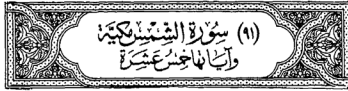 (٩١) سُورَةُ الشَّمْسِ مَكِيَّة
وَآيَاتُهَا خَمْسَ عَشَرَة